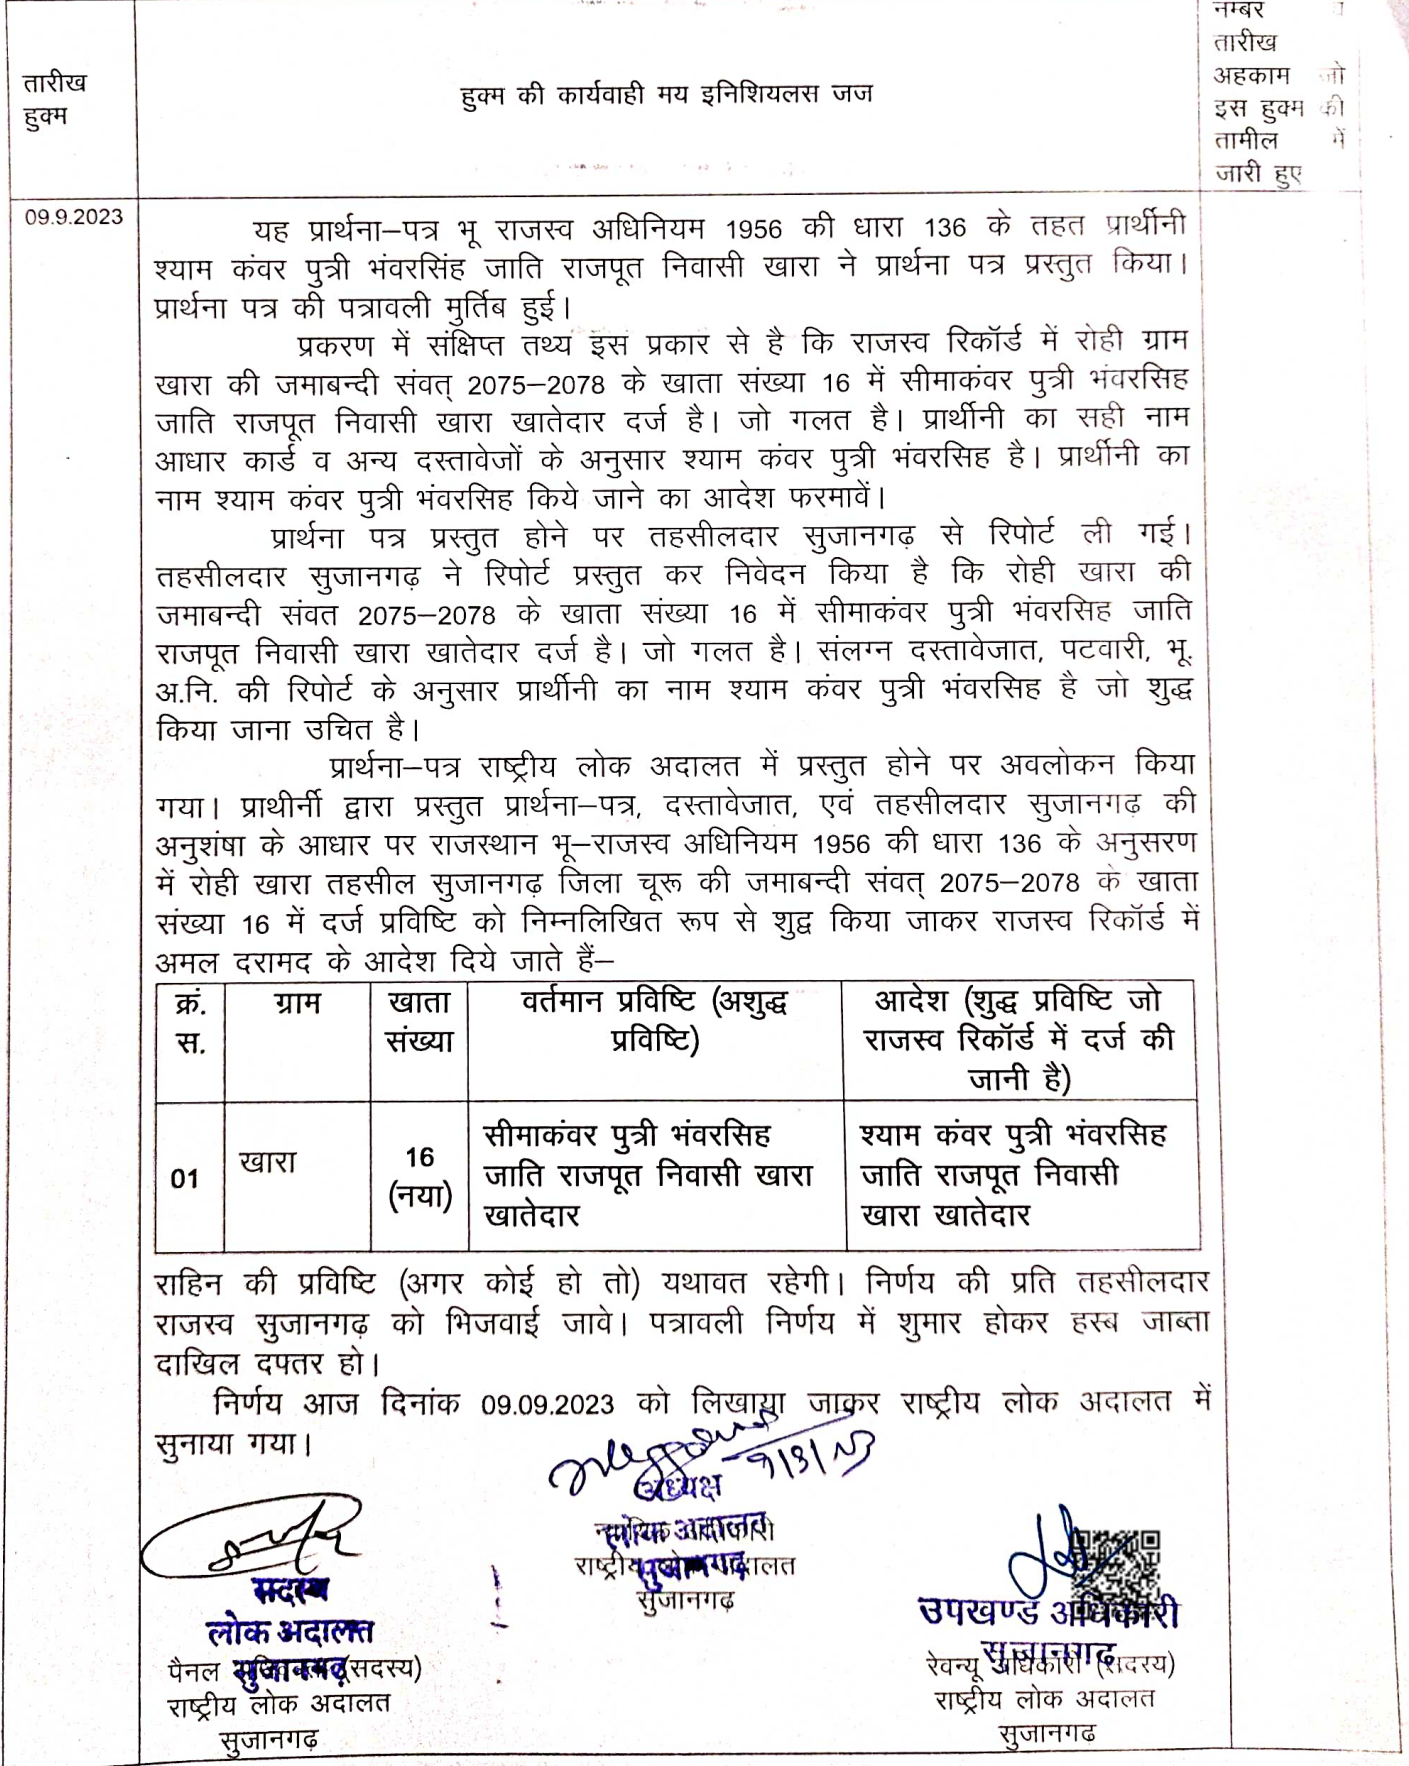 तारीख
हुक्म
हुक्म की कार्यवाही मय इनिशियलस जज
नम्बर व
तारीख
अहकाम जो
इस हुक्म की
तामील में
जारी हुए
09.9.2023
यह प्रार्थना–पत्र भू राजस्व अधिनियम 1956 की धारा 136 के तहत प्रार्थीनी
श्याम कंवर पुत्री भंवरसिंह जाति राजपूत निवासी खारा ने प्रार्थना पत्र प्रस्तुत किया।
प्रार्थना पत्र की पत्रावली मुर्तिब हुई।
प्रकरण में संक्षिप्त तथ्य इस प्रकार से है कि राजस्व रिकॉर्ड में रोही ग्राम
खारा की जमाबन्दी संवत् 2075–2078 के खाता संख्या 16 में सीमाकंवर पुत्री भंवरसिह
जाति राजपूत निवासी खारा खातेदार दर्ज है। जो गलत है। प्रार्थीनी का सही नाम
आधार कार्ड व अन्य दस्तावेजों के अनुसार श्याम कंवर पुत्री भंवरसिह है। प्रार्थीनी का
नाम श्याम कंवर पुत्री भंवरसिह किये जाने का आदेश फरमावें।
प्रार्थना पत्र प्रस्तुत होने पर तहसीलदार सुजानगढ़ से रिपोर्ट ली गई।
तहसीलदार सुजानगढ़ ने रिपोर्ट प्रस्तुत कर निवेदन किया है कि रोही खारा की
जमाबन्दी संवत 2075–2078 के खाता संख्या 16 में सीमाकंवर पुत्री भंवरसिह जाति
राजपूत निवासी खारा खातेदार दर्ज है। जो गलत है। संलग्न दस्तावेजात, पटवारी, भू.
अ.नि. की रिपोर्ट के अनुसार प्रार्थीनी का नाम श्याम कंवर पुत्री भंवरसिह है जो शुद्ध
किया जाना उचित है।
प्रार्थना–पत्र राष्ट्रीय लोक अदालत में प्रस्तुत होने पर अवलोकन किया
गया। प्राथीर्नी द्वारा प्रस्तुत प्रार्थना–पत्र, दस्तावेजात, एवं तहसीलदार सुजानगढ़ की
अनुशंषा के आधार पर राजस्थान भू–राजस्व अधिनियम 1956 की धारा 136 के अनुसरण
में रोही खारा तहसील सुजानगढ़ जिला चूरू की जमाबन्दी संवत् 2075–2078 के खाता
संख्या 16 में दर्ज प्रविष्टि को निम्नलिखित रूप से शुद्व किया जाकर राजस्व रिकॉर्ड में
अमल दरामद के आदेश दिये जाते हैं–
क्रं.
स.
ग्राम
खाता
संख्या
वर्तमान प्रविष्टि (अशुद्ध
प्रविष्टि)
आदेश (शुद्ध प्रविष्टि जो
राजस्व रिकॉर्ड में दर्ज की
जानी है)
01
खारा
16
(नया)
सीमाकंवर पुत्री भंवरसिह
जाति राजपूत निवासी खारा
खातेदार
श्याम कंवर पुत्री भंवरसिह
जाति राजपूत निवासी
खारा खातेदार
राहिन की प्रविष्टि (अगर कोई हो तो) यथावत रहेगी। निर्णय की प्रति तहसीलदार
राजस्व सुजानगढ़ को भिजवाई जावे। पत्रावली निर्णय में शुमार होकर हस्ब जाब्ता
दाखिल दफ्तर हो।
निर्णय आज दिनांक 09.09.2023 को लिखाया जाकर राष्ट्रीय लोक अदालत में
सुनाया गया।
अध्यक्ष
लोक अदालत
सुजानगढ़
राष्ट्रीय लोक अदालत
सुजानगढ़
सदस्य
लोक अदालत
सुजानगढ़
पैनल (सदस्य)
राष्ट्रीय लोक अदालत
सुजानगढ़
उपखण्ड अधिकारी
सुजानगढ़
रेवन्यू अधिकारी (सदस्य)
राष्ट्रीय लोक अदालत
सुजानगढ़